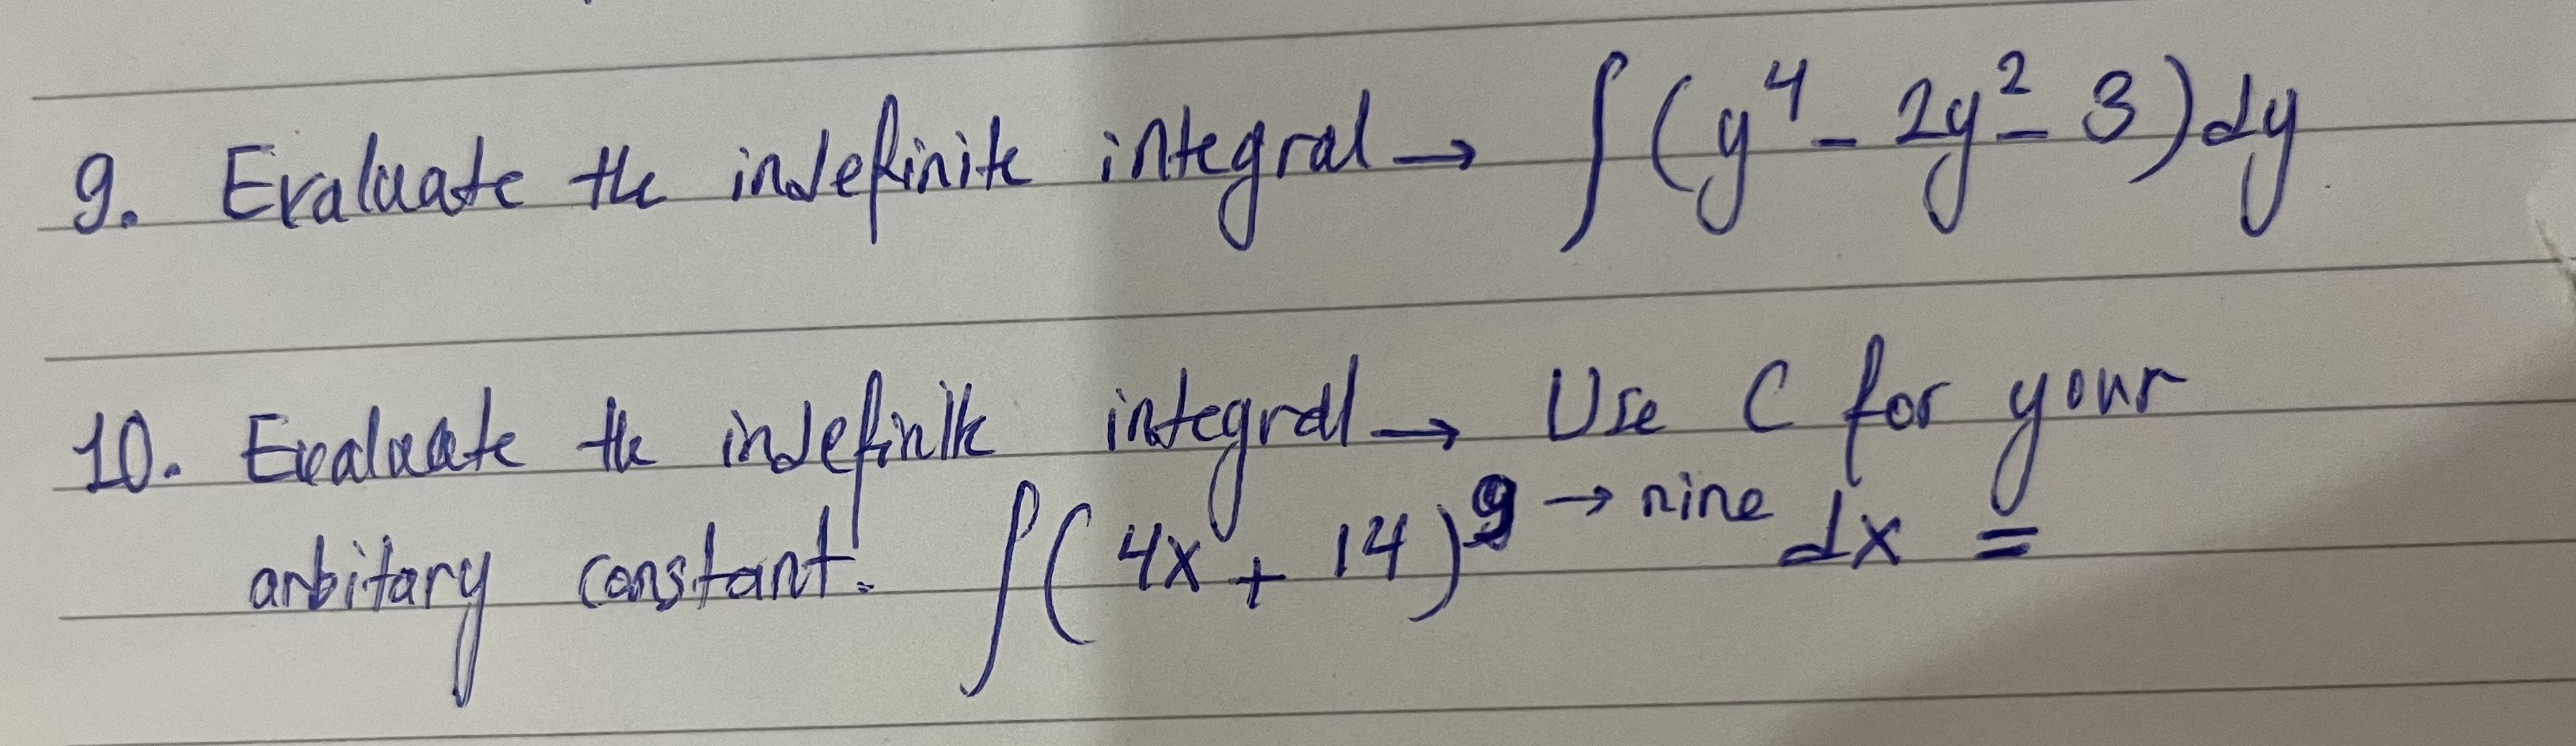 9. Evaluate the indefinite integral → ∫(y⁴ - 2y² - 3)dy
10. Evaluate the indefinite integral → Use C for your
arbitary constant. ∫(4x + 14)⁹ → nine dx =